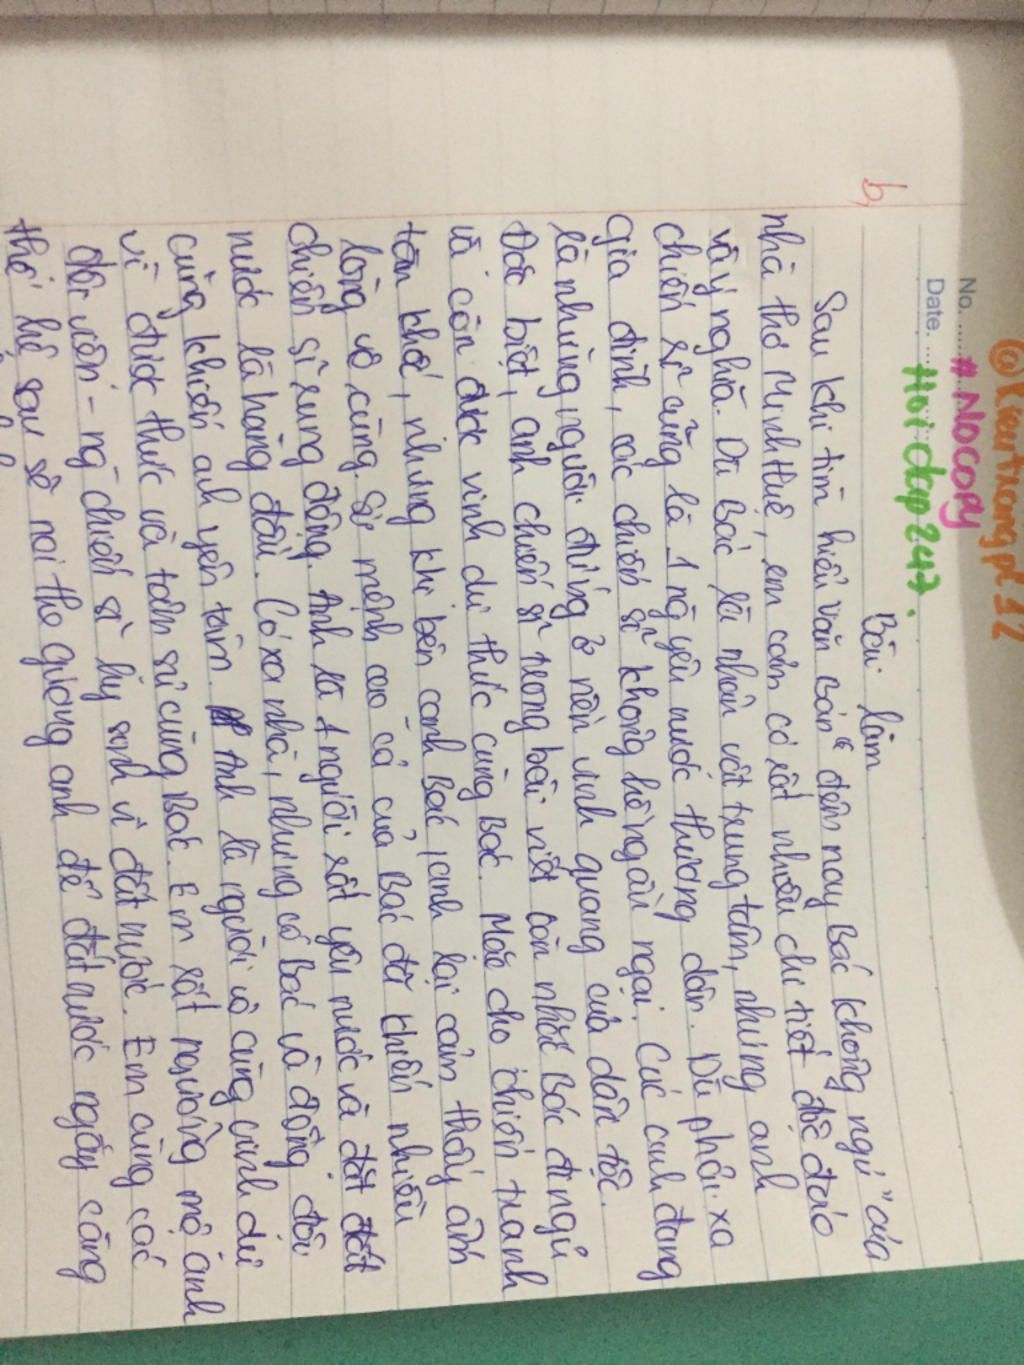 @Kieutrangpt 12
No. ...... # Nocopy
Date. ... Hoidap247.
Bài làm
b,
Sau khi tìm hiểu văn bản " đêm nay Bác không ngủ " của
nhà thơ Minh Huệ, em cảm có rất nhiều chi tiết độc đáo
và ý nghĩa. Dù Bác là nhân vật trung tâm, nhưng anh
chiến sĩ cũng là 1 ng yêu nước thương dân. Dù phải xa
gia đình, các chiến sĩ không hề ngần ngại. Các anh đang
là những người đứng ở nền vinh quang của dân tộc.
Đặc biệt, anh chiến sĩ trong bài viết còn nhắc Bác đi ngủ
và còn được vinh dự thức cùng Bác. Mặc cho chiến tranh
tàn khốc, nhưng khi bên cạnh Bác, anh lại cảm thấy ấm
lòng vô cùng. Sứ mệnh cao cả của Bác đã khiến nhiều
chiến sĩ xung động. Anh là 1 người rất yêu nước và đặt đất
nước là hàng đầu. Có xa nhà, nhưng có Bác và đồng đội
cũng khiến anh yên tâm. Anh là người vô cùng vinh dự
vì được thức và tâm sự cùng Bác. Em rất ngưỡng mộ anh
đội viên - ng chiến sĩ hy sinh vì đất nước. Em cùng các
thế hệ sau sẽ noi theo gương anh để đất nước ngày càng